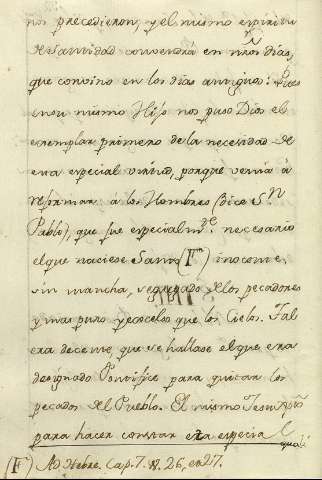 nos precedieron, y el mismo espiritu
de Santidad convendrá en nros. dias,
que convino en los dias antiguos: Pues
en su mismo Hijo nos puso Dios el
exemplar primero de la necesidad de
esta especial virtud, porque venia á
reformar á los Hombres (dice Sn
Pablo), que fue especialmte. necesario
el que naciese Santo (F) inocente,
sin mancha, segregado de los pecadores
y mas puro y excelso que los Cielos. Tal
era decente que se hallase el que era
designado Pontifice para quitar los
pecados del Pueblo. El mismo Jesuxpto
para hacer constar esta especial
quali
(F) Ad Hebre. Cap. 7. V. 26, et 27.